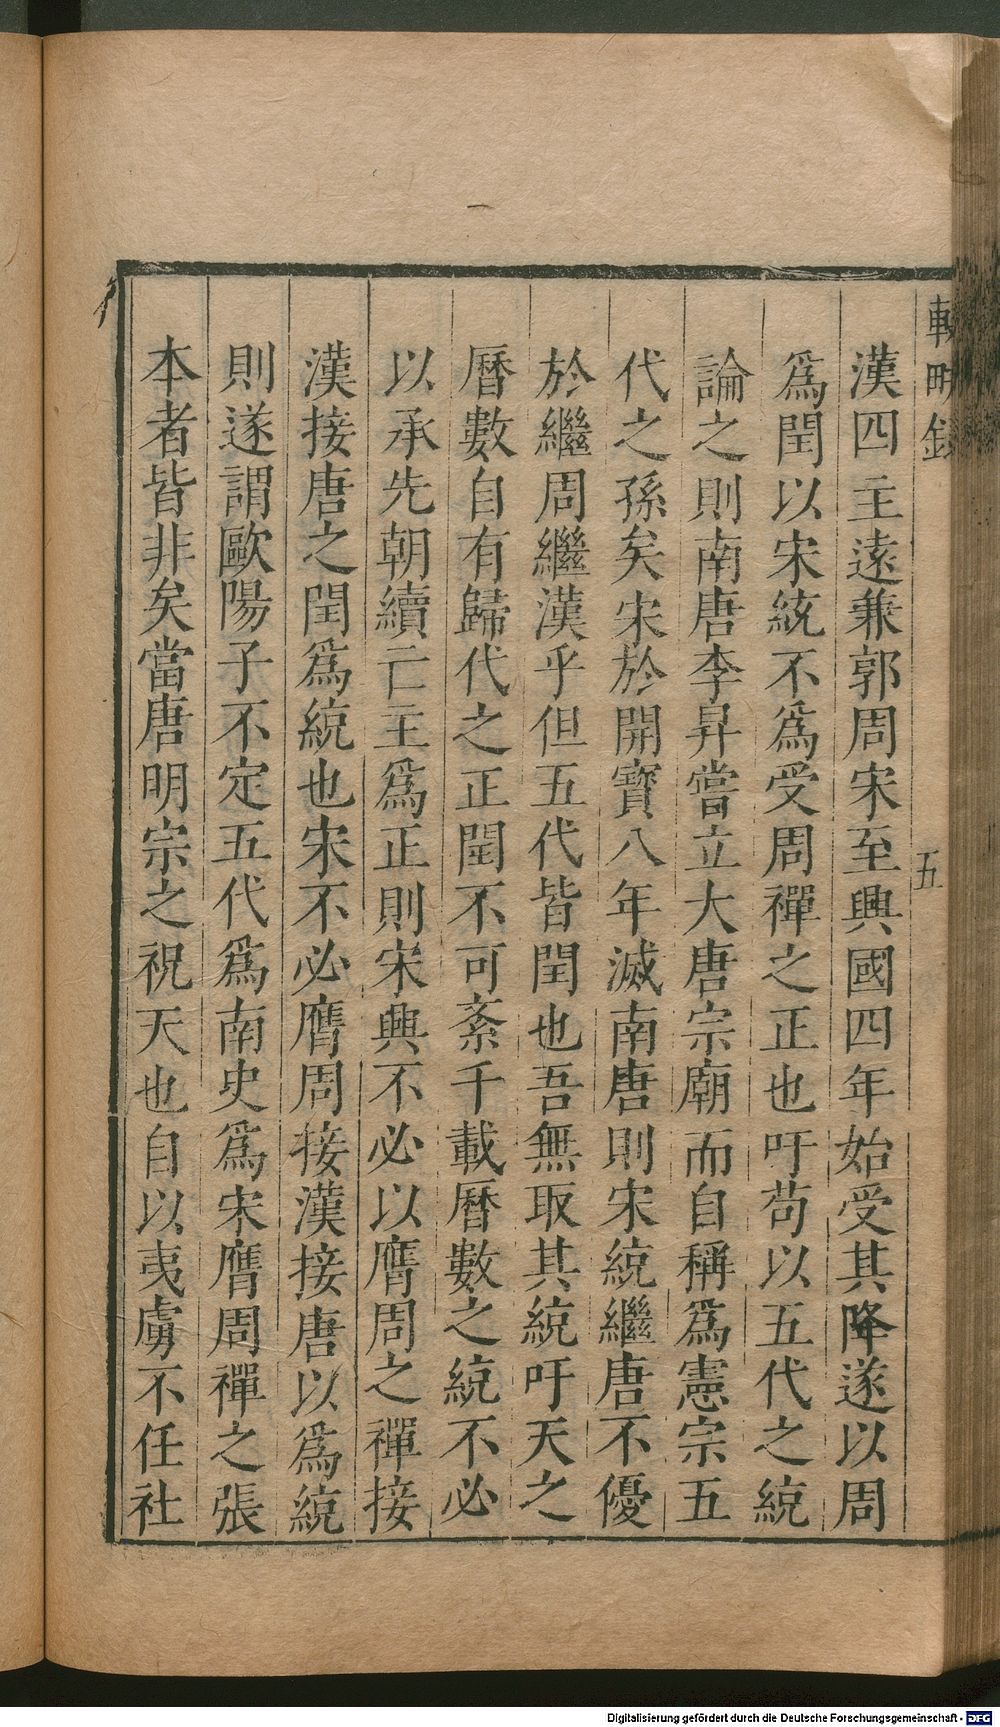 輟畊錄
五
漢四主遠兼郭周宋至興國四年始受其降遂以周
爲閏以宋統不爲受周禪之正也吁苟以五代之統
論之則南唐李昇嘗立大唐宗廟而自稱爲憲宗五
代之孫矣宋於開寶八年滅南唐則宋統繼唐不優
於繼周繼漢乎但五代皆閏也吾無取其統吁天之
曆數自有歸代之正閏不可紊千載曆數之統不必
以承先朝續亡主爲正則宋興不必以膺周之禪接
漢接唐之閏爲統也宋不必膺周接漢接唐以爲統
則遂謂歐陽子不定五代爲南史爲宋膺周禪之張
本者皆非矣當唐明宗之祝天也自以夷虜不任社
Digitalisierung gefördert durch die Deutsche Forschungsgemeinschaft - DFG